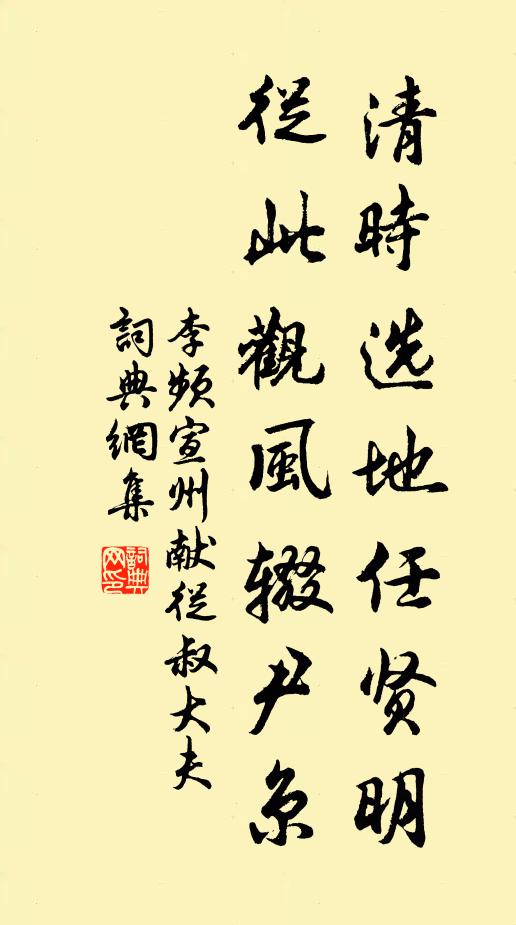 清時选地任贤明
從此觀風辍尹京
李频宣州献從叔大夫
詞典網集
詞典网印